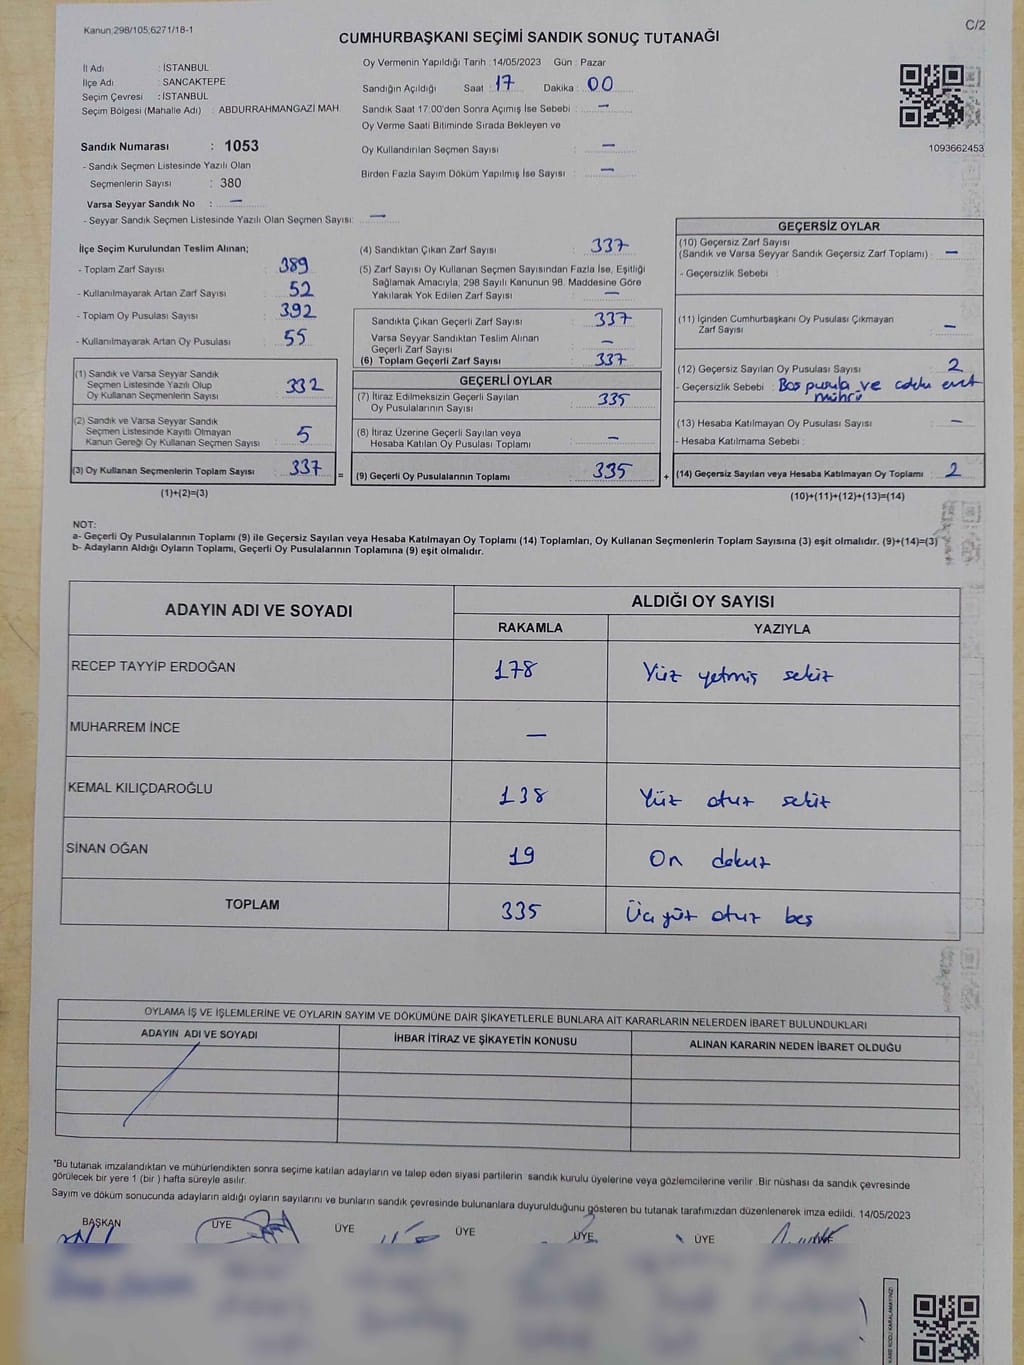 Kanun;298/105;6271/18-1
C/2
CUMHURBAŞKANI SEÇİMİ SANDIK SONUÇ TUTANAĞI
İl Adı : İSTANBUL
İlçe Adı : SANCAKTEPE
Seçim Çevresi : İSTANBUL
Seçim Bölgesi (Mahalle Adı) : ABDURRAHMANGAZİ MAH.
Oy Vermenin Yapıldığı Tarih : 14/05/2023 Gün : Pazar
Sandığın Açıldığı Saat : 17 Dakika : 00
Sandık Saat 17:00'den Sonra Açımış İse Sebebi : —
Oy Verme Saati Bitiminde Sırada Bekleyen ve
Oy Kullandırılan Seçmen Sayısı : —
Birden Fazla Sayım Döküm Yapılmış İse Sayısı : —
1093662453
Sandık Numarası : 1053
- Sandık Seçmen Listesinde Yazılı Olan
Seçmenlerin Sayısı : 380
Varsa Seyyar Sandık No : —
- Seyyar Sandık Seçmen Listesinde Yazılı Olan Seçmen Sayısı: —
İlçe Seçim Kurulundan Teslim Alınan;
- Toplam Zarf Sayısı : 389
- Kullanılmayarak Artan Zarf Sayısı : 52
- Toplam Oy Pusulası Sayısı : 392
- Kullanılmayarak Artan Oy Pusulası : 55
(1) Sandık ve Varsa Seyyar Sandık
Seçmen Listesinde Yazılı Olup
Oy Kullanan Seçmenlerin Sayısı : 332
(2) Sandık ve Varsa Seyyar Sandık
Seçmen Listesinde Kayıtlı Olmayan
Kanun Gereği Oy Kullanan Seçmen Sayısı : 5
(3) Oy Kullanan Seçmenlerin Toplam Sayısı : 337
(1)+(2)=(3)
(4) Sandıktan Çıkan Zarf Sayısı : 337
(5) Zarf Sayısı Oy Kullanan Seçmen Sayısından Fazla İse, Eşitliği
Sağlamak Amacıyla, 298 Sayılı Kanunun 98. Maddesine Göre
Yakılarak Yok Edilen Zarf Sayısı : —
Sandıkta Çıkan Geçerli Zarf Sayısı : 337
Varsa Seyyar Sandıktan Teslim Alınan
Geçerli Zarf Sayısı : —
(6) Toplam Geçerli Zarf Sayısı : 337
GEÇERLİ OYLAR
(7) İtiraz Edilmeksizin Geçerli Sayılan
Oy Pusulalarının Sayısı : 335
(8) İtiraz Üzerine Geçerli Sayılan veya
Hesaba Katılan Oy Pusulası Toplamı : —
= (9) Geçerli Oy Pusulalarının Toplamı : 335
GEÇERSİZ OYLAR
(10) Geçersiz Zarf Sayısı
(Sandık ve Varsa Seyyar Sandık Geçersiz Zarf Toplamı) : —
- Geçersizlik Sebebi :
(11) İçinden Cumhurbaşkanı Oy Pusulası Çıkmayan
Zarf Sayısı : —
(12) Geçersiz Sayılan Oy Pusulası Sayısı : 2
- Geçersizlik Sebebi : Boş pusula ve evet
mührü
(13) Hesaba Katılmayan Oy Pusulası Sayısı : —
- Hesaba Katılmama Sebebi :
+ (14) Geçersiz Sayılan veya Hesaba Katılmayan Oy Toplamı : 2
(10)+(11)+(12)+(13)=(14)
NOT:
a- Geçerli Oy Pusulalarının Toplamı (9) ile Geçersiz Sayılan veya Hesaba Katılmayan Oy Toplamı (14) Toplamları, Oy Kullanan Seçmenlerin Toplam Sayısına (3) eşit olmalıdır. (9)+(14)=(3)
b- Adayların Aldığı Oyların Toplamı, Geçerli Oy Pusulalarının Toplamına (9) eşit olmalıdır.
ADAYIN ADI VE SOYADI
ALDIĞI OY SAYISI
RAKAMLA YAZIYLA
RECEP TAYYİP ERDOĞAN 178 Yüz yetmiş sekiz
MUHARREM İNCE —
KEMAL KILIÇDAROĞLU 138 Yüz otuz sekiz
SİNAN OĞAN 19 On dokuz
TOPLAM 335 Üç yüz otuz beş
OYLAMA İŞ VE İŞLEMLERİNE VE OYLARIN SAYIM VE DÖKÜMÜNE DAİR ŞİKAYETLERLE BUNLARA AİT KARARLARIN NELERDEN İBARET BULUNDUKLARI
ADAYIN ADI VE SOYADI İHBAR İTİRAZ VE ŞİKAYETİN KONUSU ALINAN KARARIN NEDEN İBARET OLDUĞU
*Bu tutanak imzalandıktan ve mühürlendikten sonra seçime katılan adayların ve talep eden siyasi partilerin sandık kurulu üyelerine veya gözlemcilerine verilir. Bir nüshası da sandık çevresinde
görülecek bir yere 1 (bir) hafta süreyle asılır.
Sayım ve döküm sonucunda adayların aldığı oyların sayılarını ve bunların sandık çevresinde bulunanlara duyurulduğunu gösteren bu tutanak tarafımızdan düzenlenerek imza edildi. 14/05/2023
BAŞKAN ÜYE ÜYE ÜYE ÜYE ÜYE